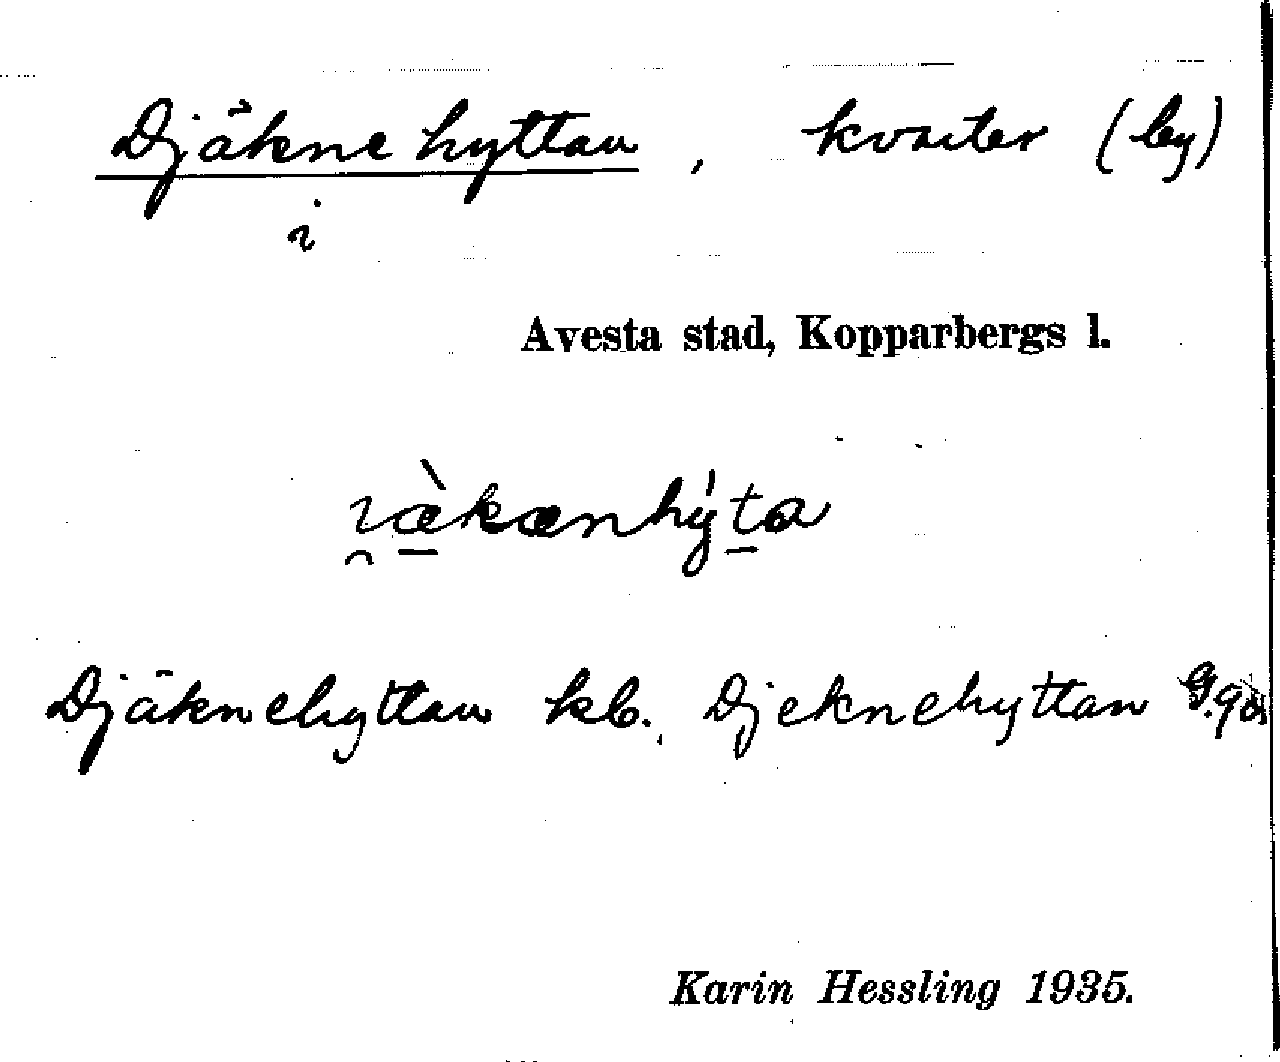 Djäknehyttan, kvarter (by)
i
Avesta stad, Kopparbergs l.
ı̯æ̠̀kænhý̍t̠a
Djäknehyttan kb., Djeknehyttan
Karin Hessling 1935.